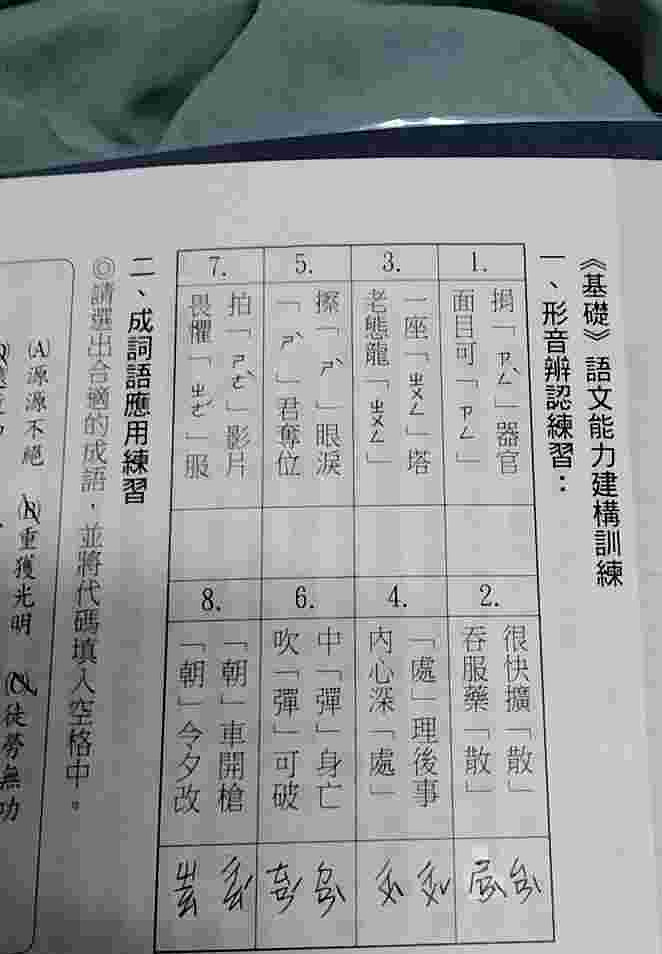 《基礎》語文能力建構訓練
一、形音辨認練習：
1.
捐「ㄗㄥˋ」器官
面目可「ㄗㄥ」
2.
很快擴「散」
吞服藥「散」
3.
一座「ㄓㄨㄥ」塔
老態龍「ㄓㄨㄥ」
4.
「處」理後事
內心深「處」
5.
擦「ㄕˋ」眼淚
「ㄕˋ」君奪位
6.
中「彈」身亡
吹「彈」可破
7.
拍「ㄕㄜˋ」影片
畏懼「ㄓㄜˊ」服
8.
「朝」車開槍
「朝」令夕改
二、成詞語應用練習
◎請選出合適的成語，並將代碼填入空格中。
(A)源源不絕 (B)重獲光明 (C)徒勞無功